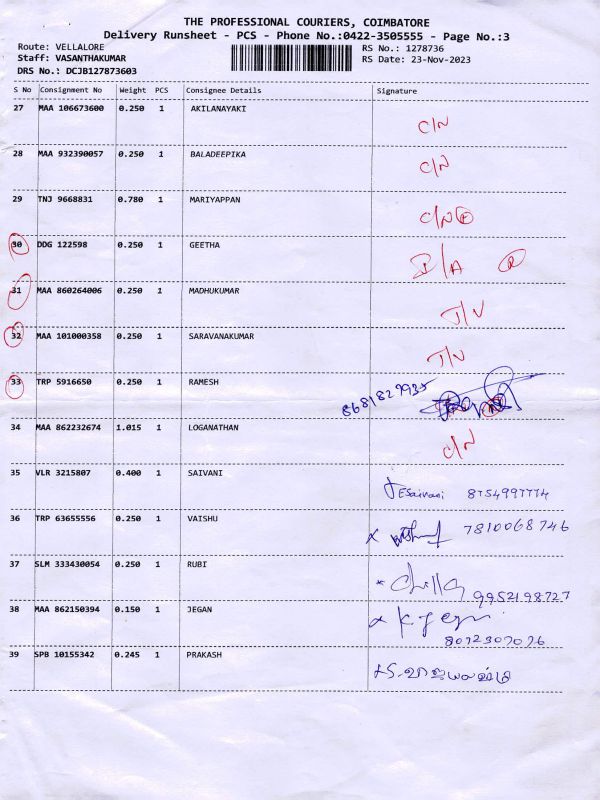 THE PROFESSIONAL COURIERS, COIMBATORE
Delivery Runsheet - PCS - Phone No.:0422-3505555 - Page No.:3
Route: VELLALORE RS No.: 1278736
Staff: VASANTHAKUMAR RS Date: 23-Nov-2023
DRS No.: DCJB127873603
S No Consignment No Weight PCS Consignee Details Signature
27 MAA 106673600 0.250 1 AKILANAYAKI
C/N
28 MAA 932390057 0.250 1 BALADEEPIKA
C/N
29 TNJ 9668831 0.780 1 MARIYAPPAN
C/N
30 DDG 122598 0.250 1 GEETHA
I/A R
31 MAA 860264006 0.250 1 MADHUKUMAR
J/V
32 MAA 101000358 0.250 1 SARAVANAKUMAR
J/V
33 TRP 5916650 0.250 1 RAMESH
8681827935
34 MAA 862232674 1.015 1 LOGANATHAN
C/N
35 VLR 3215807 0.400 1 SAIVANI
ESaivani
36 TRP 63655556 0.250 1 VAISHU
7810068746
37 SLM 333430054 0.250 1 RUBI
9952198727
38 MAA 862150394 0.150 1 JEGAN
39 SPB 10155342 0.245 1 PRAKASH